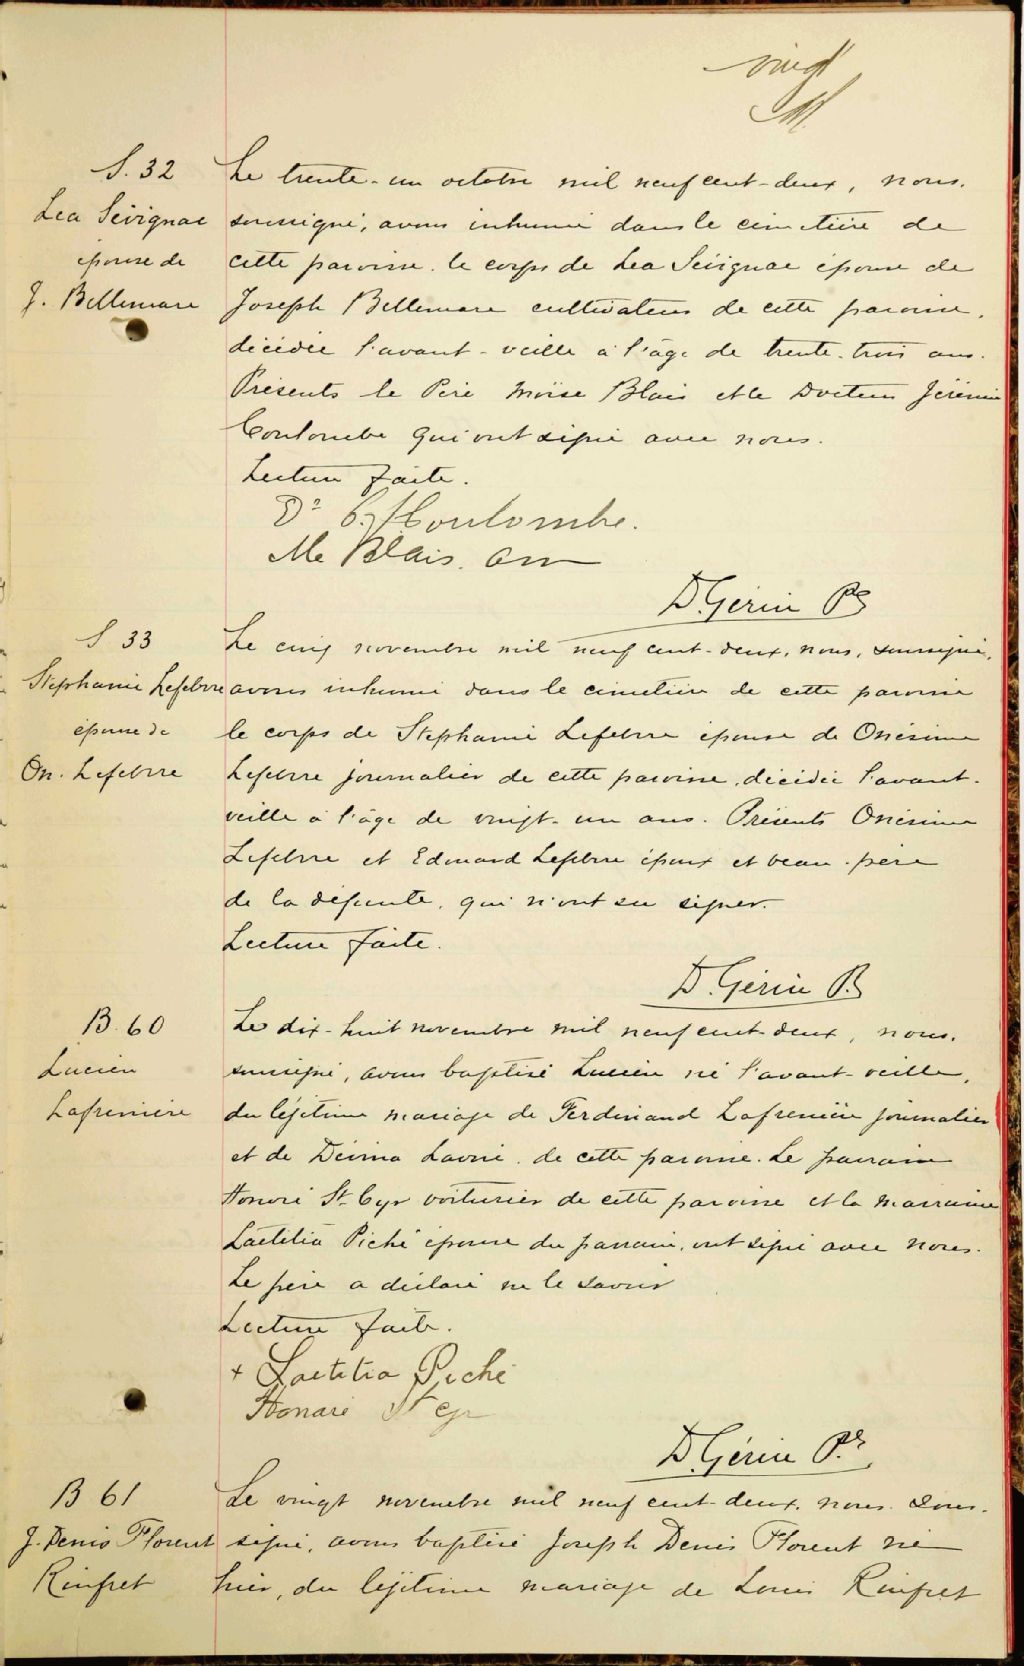 vingt
S. 32
Lea Sévignac
épouse de
J. Bellemare
Le trente-un octobre mil neuf cent-deux, nous,
soussigné, avons inhumé dans le cimetière de
cette paroisse le corps de Lea Sévignac épouse de
Joseph Bellemare cultivateur de cette paroisse,
décédée l'avant-veille à l'âge de trente-trois ans.
Présents le Père Moïse Blais et le Docteur Jérémie
Coulombe qui ont signé avec nous.
Lecture faite.
Dr Coulombe.
Me Blais.
D. Gérin Ptre
S 33
Stephanie Lefebvre
épouse de
On. Lefebvre
Le cinq novembre mil neuf cent-deux, nous, soussigné,
avons inhumé dans le cimetière de cette paroisse
le corps de Stephanie Lefebvre épouse de Onésime
Lefebvre journalier de cette paroisse, décédée l'avant-
veille à l'âge de vingt-un ans. Présents Onésime
Lefebvre et Edouard Lefebvre époux et beau-père
de la défunte, qui n'ont su signer.
Lecture faite.
D. Gérin P.
B. 60
Lucien
Lafrenière
Le dix-huit novembre mil neuf cent deux, nous,
soussigné, avons baptisé Lucien né l'avant-veille,
du légitime mariage de Ferdinand Lafrenière journalier
et de Démina Lavoie de cette paroisse. Le parrain
Honoré St Cyr voiturier de cette paroisse et la marraine
Laetitia Piché épouse du parrain, ont signé avec nous.
Le père a déclaré ne le savoir
Lecture faite.
+ Laetitia Piché
Honoré St Cyr
D. Gérin Ptre.
B 61
J. Denis Florent
Rinfret
Le vingt novembre mil neuf cent-deux, nous sous-
signé, avons baptisé Joseph Denis Florent né
hier, du légitime mariage de Louis Rinfret